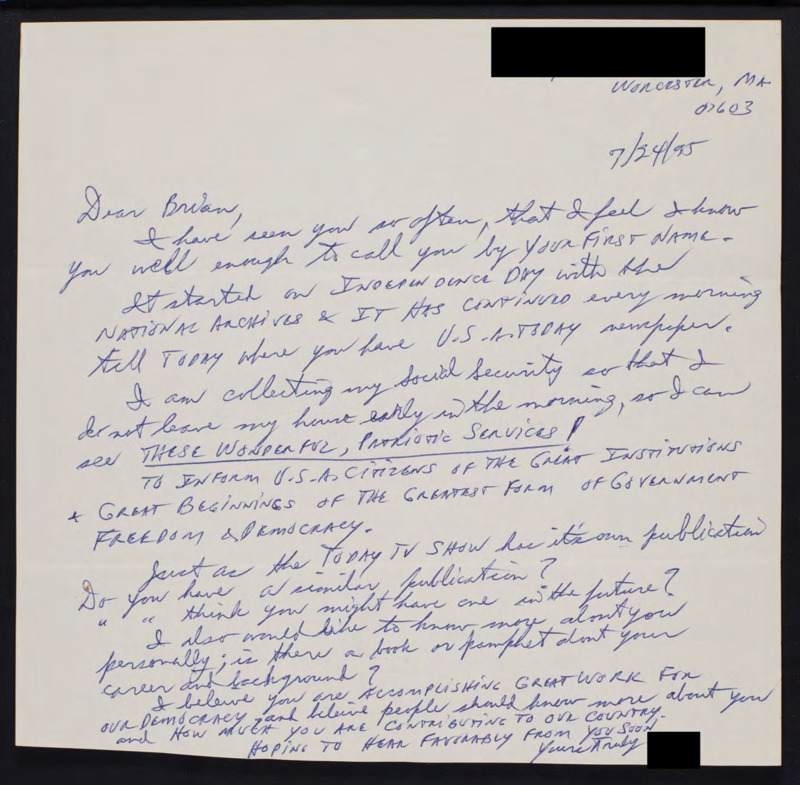 Worcester, MA
01603
7/24/95
Dear Brian,
I have seen you so often, that I feel I know
you well enough to call you by YOUR FIRST NAME.
It started on INDEPENDENCE DAY with the
NATIONAL ARCHIVES & IT HAS CONTINUED every morning
till TODAY where you have U.S.A. TODAY newspaper.
I am collecting my Social Security so that I
do not leave my house early in the morning, so I can
see THESE WONDERFUL, PATRIOTIC SERVICES!
TO INFORM U.S.A. CITIZENS OF THE GREAT INSTITUTIONS
* GREAT BEGINNINGS OF THE GREATEST FORM OF GOVERNMENT
FREEDOM & DEMOCRACY.
Just as the TODAY TV SHOW has it's own publication
Do you have a similar publication?
" " think you might have one in the future?
I also would like to know more about you
personally; is there a book or pamphet about your
career and background?
I beleive you are ACCOMPLISHING GREAT WORK FOR
OUR DEMOCRACY and beleive people should know more about you
and HOW MUCH YOU ARE CONTRIBUTING TO OUR COUNTRY.
HOPING TO HEAR FAVORABLY FROM YOU SOON,
Yours Truly